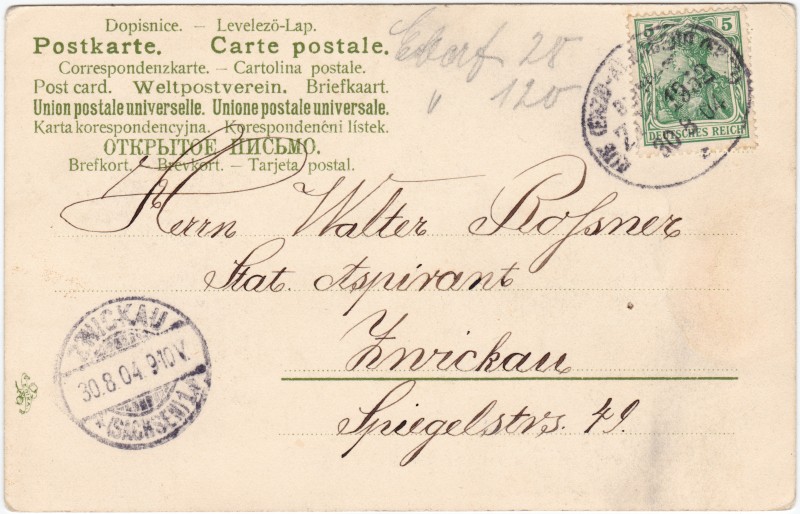 Dopisnice. – Levelező-Lap.
Postkarte. Carte postale.
Correspondenzkarte. – Cartolina postale.
Post card. Weltpostverein. Briefkaart.
Union postale universelle. Unione postale universale.
Karta korespondencyjna. Korespondenční lístek.
ОТКРЫТОЕ ПИСЬМО.
Brefkort. – Brevkort. – Tarjeta postal.
28
" 120
5 5
DEUTSCHES REICH
30 8 04
Herrn Walter Roſsner
Stat. Aspirant
Zwickau
Spiegelstrs. 49.
ZWICKAU
30.8.04. 9-10V.
(SACHSEN) 1